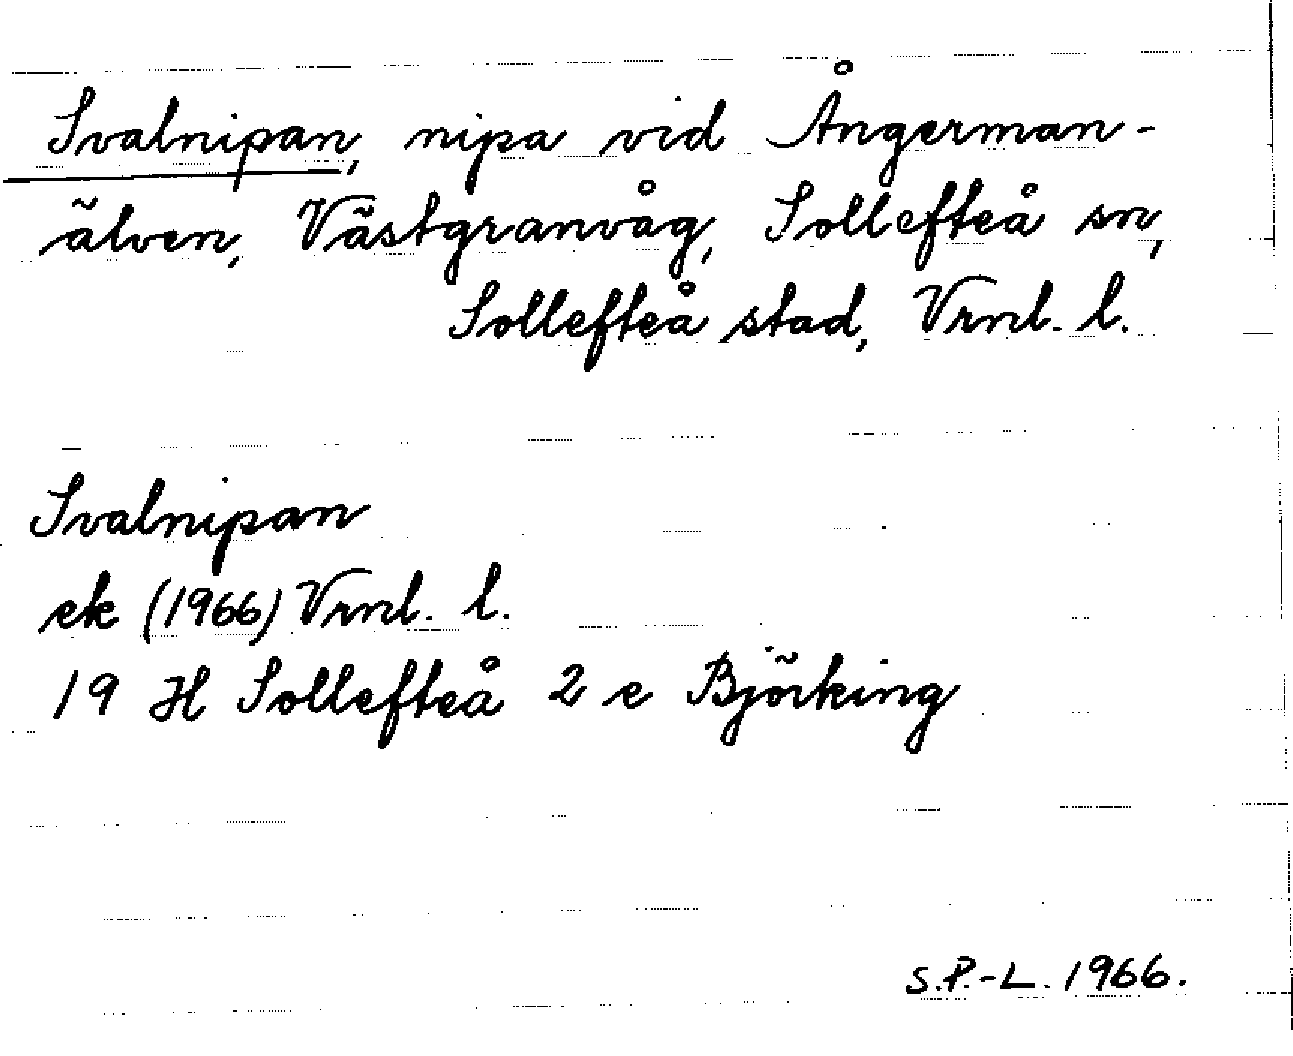 Svalnipan, nipa vid Ångerman-
älven, Västgranvåg, Sollefteå sn,
Sollefteå stad, Vrnl. l.
Svalnipan
ek (1966) Vrnl. l.
19 H Sollefteå 2 e Björking
S.P.-L. 1966.